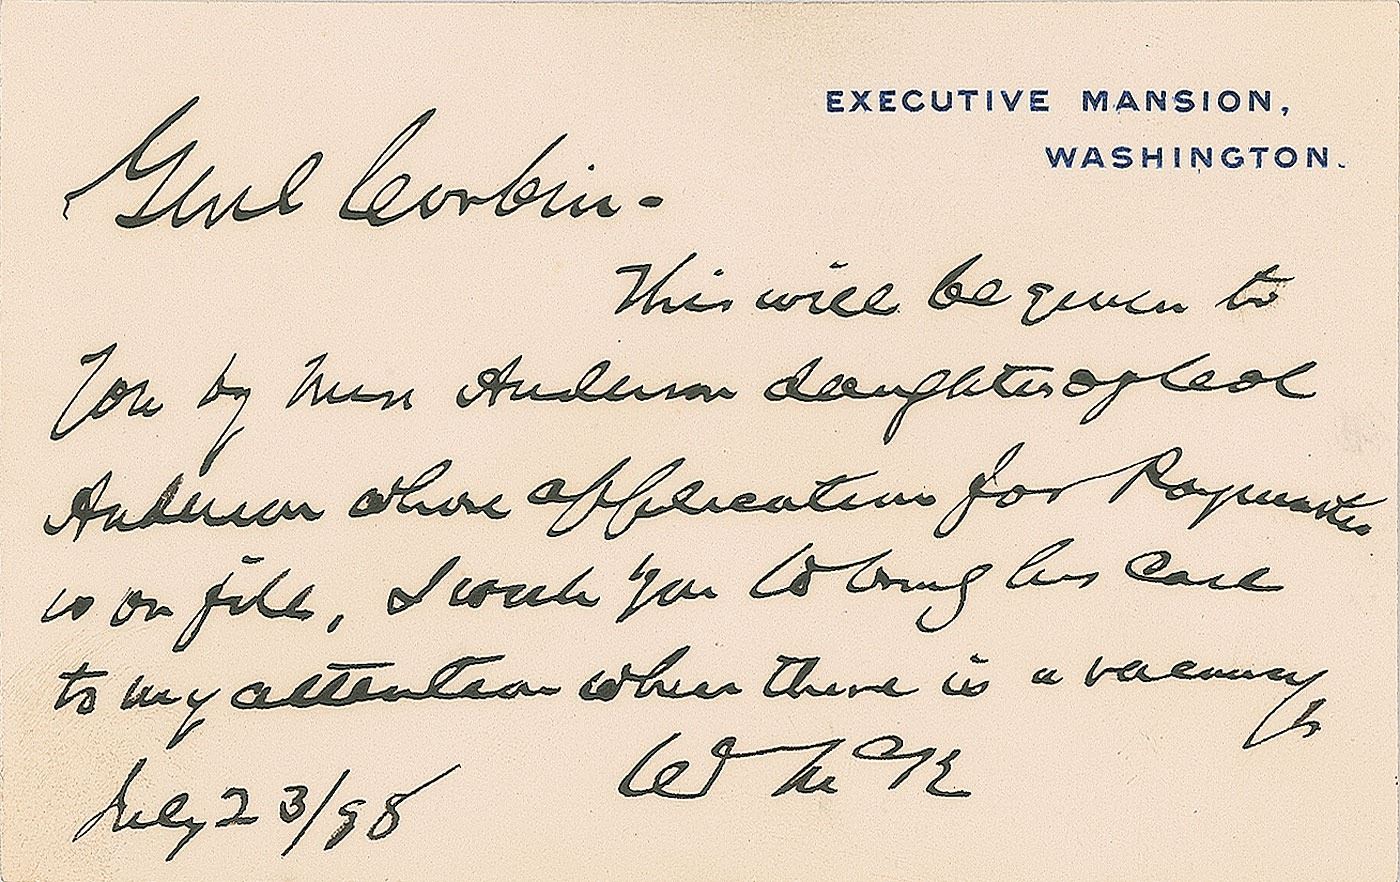 EXECUTIVE MANSION,
WASHINGTON.
Genl Corbin -
This will be given to
You by Miss Anderson daughter of Col
Anderson whose application for Paymaster
is on file, I wish you to bring his case
to my attention when there is a vacancy
W McK
July 23/98